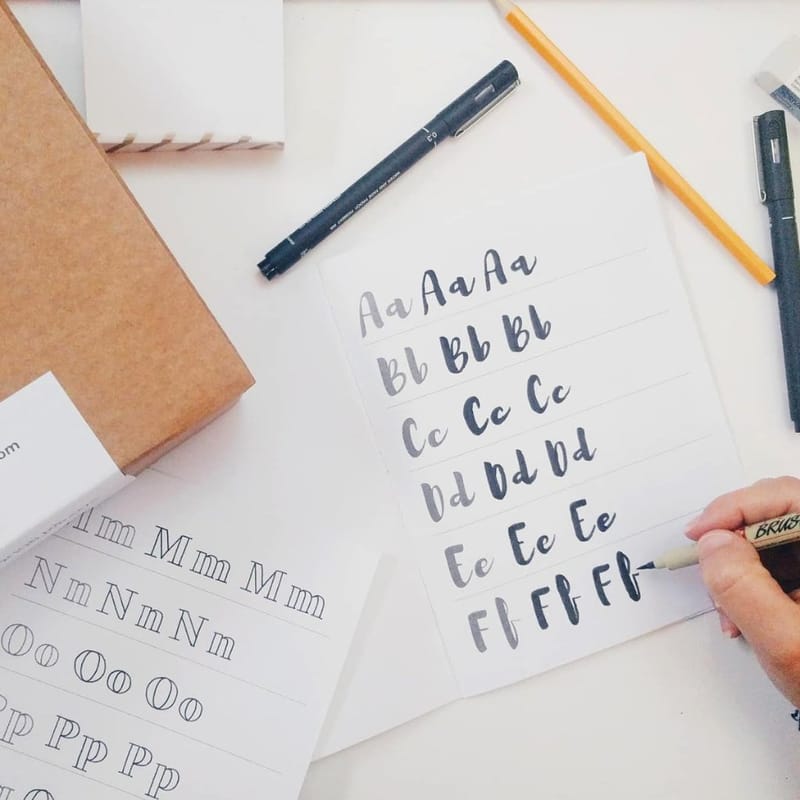 Aa Aa Aa
Bb Bb Bb
Cc Cc Cc
Dd Dd Dd
Ee Ee Ee
Ff Ff Ff
BRUS
0.5
om
Mm Mm Mm
Nn Nn Nn
Oo Oo Oo
Pp Pp Pp